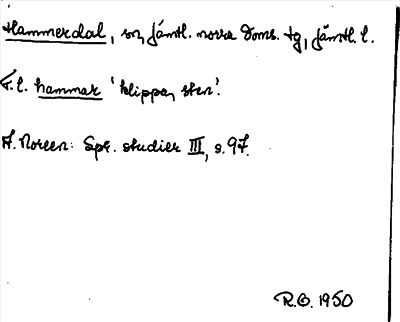 Hammerdal, sn, Jämtl. norra doms. tg, Jämtl. l.
F.l. hammar 'klippa, sten'.
A. Noreen: Spr. studier III, s. 97.
R.O. 1950